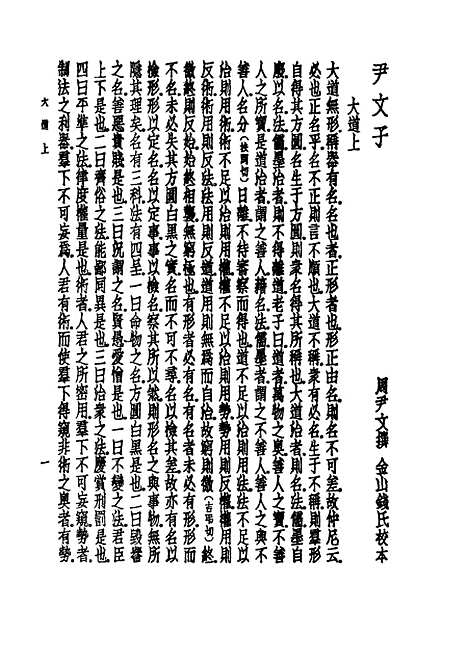 尹文子
周尹文撰 金山錢氏校本
大道上
大道無形稱器有名名也者正形者也形正由名則名不可差故仲尼云
必也正名乎名不正則言不順也大道不稱衆有必名生于不稱則羣形
自得其方圓名生于方圓則衆名得其所稱也大道治者則名法儒墨自
廢以名法儒墨治者則不得離道老子曰道者萬物之奧善人之寶不善
人之所寶是道治者謂之善人藉名法儒墨者謂之不善人善人之與不
善人名分(扶問切)日離不待審察而得也道不足以治則用法法不足以
治則用術術不足以治則用權權不足以治則用勢勢用則反權權用則
反術術用則反法法用則反道道用則無爲而自治故窮則徼(古弔切)終
徼終則反始始終相襲無窮極也有形者必有名有名者未必有形形而
不名未必失其方圓白黑之實名而不可不尋名以檢其差故亦有名以
檢形形以定名名以定事事以檢名察其所以然則形名之與事物無所
隱其理矣名有三科法有四呈一曰命物之名方圓白黑是也二曰毀譽
之名善惡貴賤是也三曰況謂之名賢愚愛憎是也一曰不變之法君臣
上下是也二曰齊俗之法能鄙同異是也三曰治衆之法慶賞刑罰是也
四曰平準之法律度權量是也術者人君之所密用羣下不可妄窺勢者
制法之利器羣下不可妄爲人君有術而使羣下得窺非術之奧者有勢
大道上
一